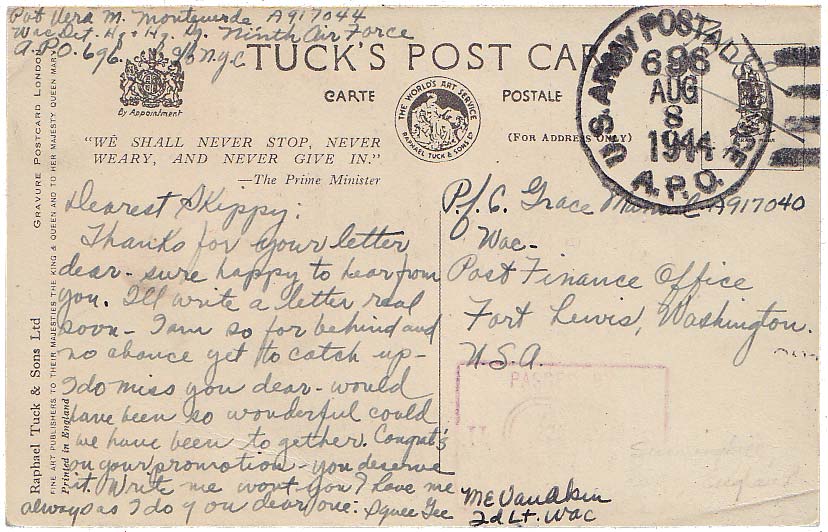 Pvt Vera M. A917044
Wac Det. Hq + Hq. Sq. Ninth Air Force
A.P.O. 696. % N.Y.C
TUCK'S POST CAR
CARTE POSTALE
By Appointment
THE WORLD'S ART SERVICE
RAPHAEL TUCK & SONS LTD
(FOR ADDRESS ONLY)
U.S. ARMY POSTAL
696
AUG
8
1944
A.P.O.
"WE SHALL NEVER STOP, NEVER
WEARY, AND NEVER GIVE IN."
—The Prime Minister
Dearest Skippy:
Thanks for your letter
dear - sure happy to hear from
you. I'll write a letter real
soon - I am so far behind and
no chance yet to catch up -
I do miss you dear - would
have been so wonderful could
we have been to gether. Congrat's
on your promotion - you deserve
it. Write me wont you & love me
always as I do you dear one:
P.f.C. Grace A917040
Wac -
Post Finance Office
Fort Lewis, Washington.
U.S.A.
PASSED BY
2d Lt. Wac
Raphael Tuck & Sons Ltd
FINE ART PUBLISHERS TO THEIR MAJESTIES THE KING & QUEEN AND TO HER MAJESTY QUEEN MARY
Printed in England
GRAVURE POSTCARD LONDON